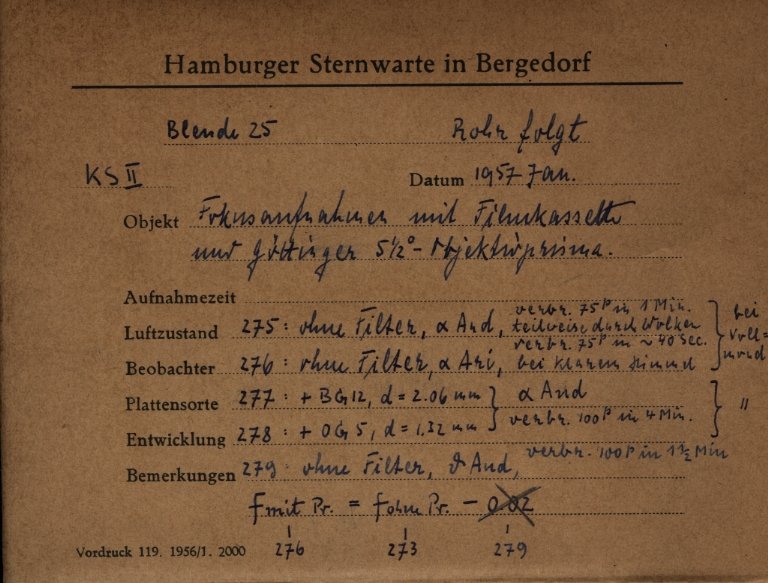 Hamburger Sternwarte in Bergedorf
Blende 25 Rohr folgt
KS II Datum 1957 Jan.
Objekt Fokusaufnahmen mit Filmkassette
und Göttinger 5 1/2° - Objektivprisma.
Aufnahmezeit
verbr. 75P in 1 Min.
Luftzustand 275: ohne Filter, α And, teilweise durch Wolken
verbr. 75P in ~ 40 Sec.
Beobachter 276: ohne Filter, α Ari, bei klarem Himmel } bei Vollmond
Plattensorte 277: + BG 12, d = 2.06 mm } α And
verbr. 100P in 4 Min. } "
Entwicklung 278: + OG 5, d = 1.32 mm
Bemerkungen 279: ohne Filter, ϑ And, verbr. 100P in 1 1/2 Min
f mit Pr. = f ohne Pr. - 0.02
Vordruck 119. 1956/1. 2000 276 273 279